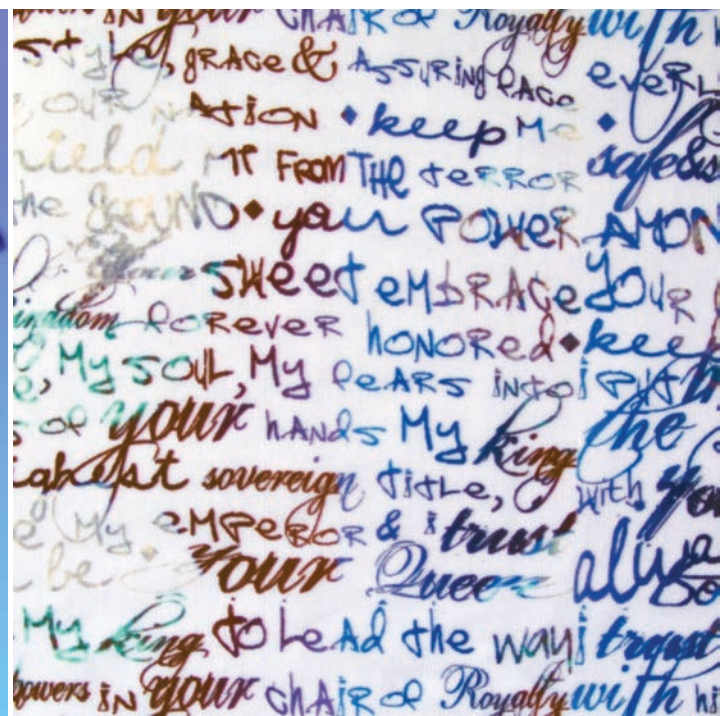 IN your CHAIR OF Royalty with
style, GRACe & ASSURING PACe
OUR ATION ♦ keep Me ♦ safe &
hield IT FROM THe TeRROR
the GROUND ♦ your POWeR AMON
SWeet eMbRACe yOUR
ingdom FOReveR HONORed ♦ kee
My SOUL, My FeARS INTO I PUT
s OF your HANds My king the
ighest sovereign TITLe, with yo
My eMPeROR & I trust
be Your Queen alwa
My king TO LeAd the way I trust
powers IN your CHAIR OF Royalty with hi